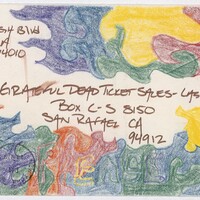 Blvd
CA
94010
GRATEFUL DEAD TICKET SALES - LAS
BOX C-S 8150
SAN RAFAEL CA
94912